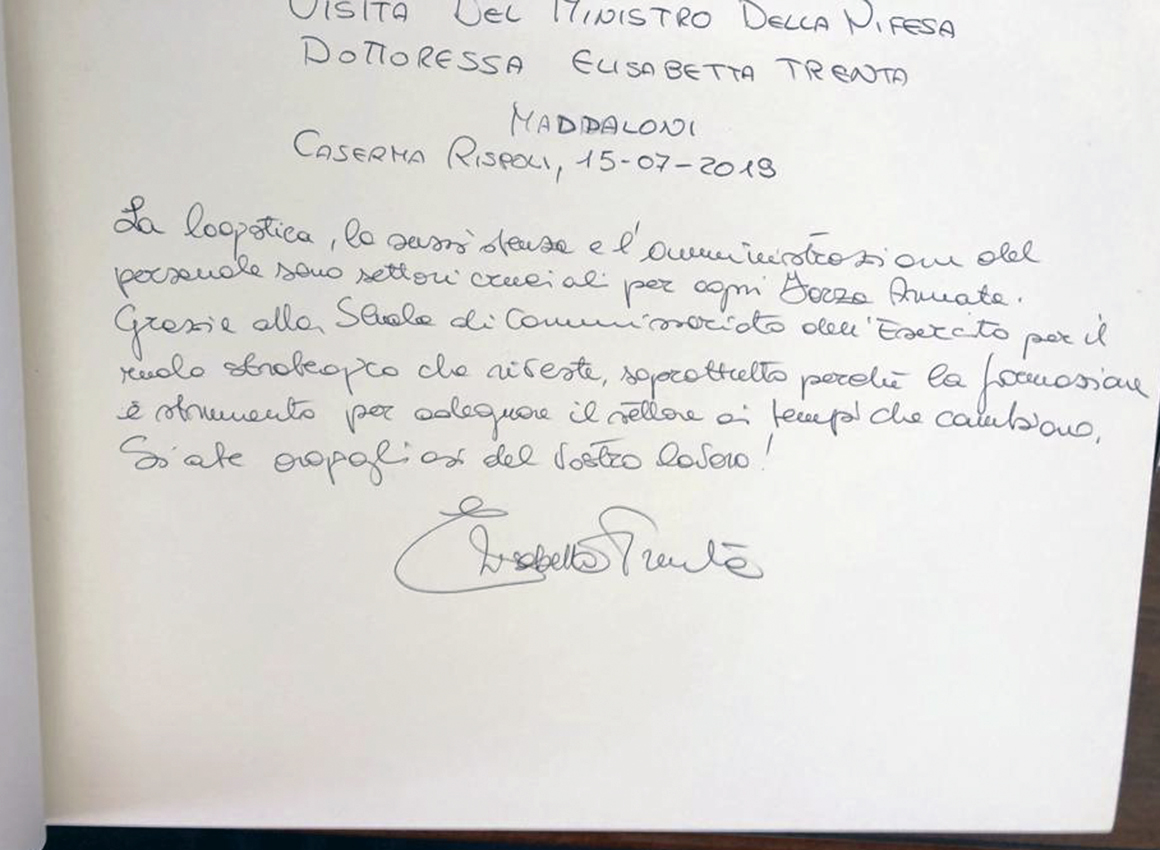 VISITA DEL MINISTRO DELLA DIFESA
DOTTORESSA ELISABETTA TRENTA
MADDALONI
CASERMA RISPOLI, 15-07-2019
La logistica, la sussistenza e l'amministrazione del
personale sono settori cruciali per ogni Forza Armata.
Grazie alla Scuola di Commissariato dell'Esercito per il
ruolo strategico che riveste, soprattutto perché la formazione
è strumento per adeguare il settore ai tempi che cambiano.
Siate orgogliosi del vostro lavoro!
Elisabetta Trenta